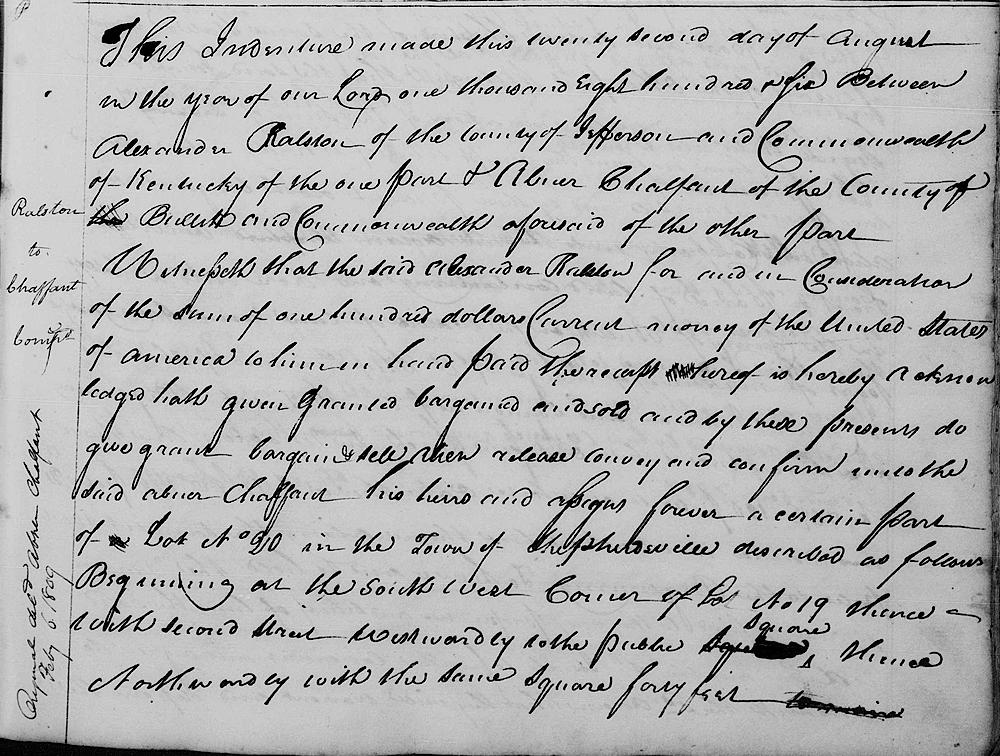 This Indenture made this twenty second day of August
in the year of our Lord one thousand Eight hundred & six Between
Alexander Ralston of the County of Jefferson and Commonwealth
of Kentucky of the one part & Abner Chalfant of the County of
Bullitt and Commonwealth aforesaid of the other part
Witnesseth that the said Alexander Ralston for and in Consideration
of the sum of one hundred dollars Current money of the United States
of america to him in hand paid the receipt hereof is hereby acknow
ledged hath given Granted bargained and sold and by these presents do
give grant bargain & sell alien release convey and confirm unto the
said abner Chalfant his heirs and assigns forever a certain part
of Lot No in the Town of Shepherdsville described as follows
Beginning at the South West Corner of Lot No 19 thence
with second Street Westwardly to the public square thence
Northwardly with the same Square forty feet
Ralston
to
Chalfant
Original deld Abner Chalfant
Feby 6 1809